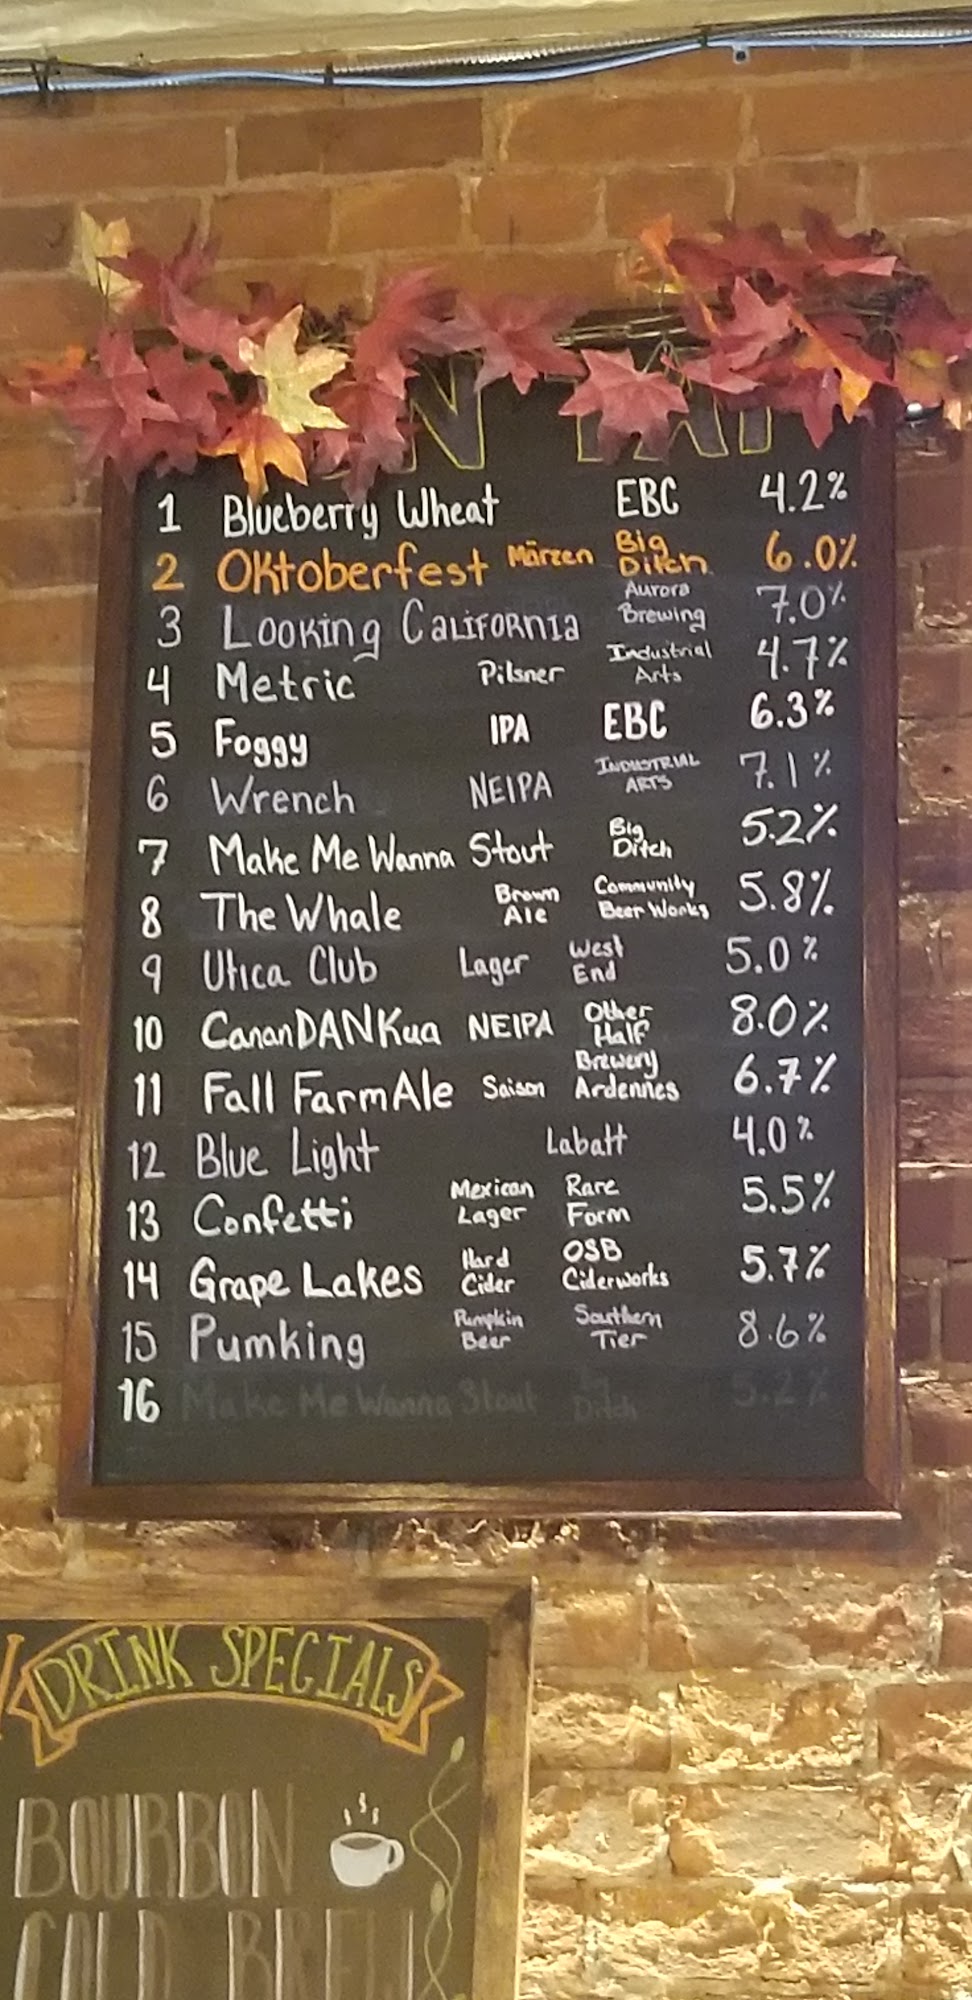 ON TAP
1 Blueberry Wheat EBC 4.2%
2 Oktoberfest Märzen Big Ditch 6.0%
3 Looking California Aurora Brewing 7.0%
4 Metric Pilsner Industrial Arts 4.7%
5 Foggy IPA EBC 6.3%
6 Wrench NEIPA INDUSTRIAL ARTS 7.1%
7 Make Me Wanna Stout Big Ditch 5.2%
8 The Whale Brown Ale Community Beer Works 5.8%
9 Utica Club Lager West End 5.0%
10 CananDANKua NEIPA Other Half 8.0%
11 Fall FarmAle Saison Brewery Ardennes 6.7%
12 Blue Light Labatt 4.0%
13 Confetti Mexican Lager Rare Form 5.5%
14 Grape Lakes Hard Cider OSB Ciderworks 5.7%
15 Pumking Pumpkin Beer Southern Tier 8.6%
16 Make Me Wanna Stout Big Ditch 5.2%
DRINK SPECIALS
BOURBON
COLD BREW